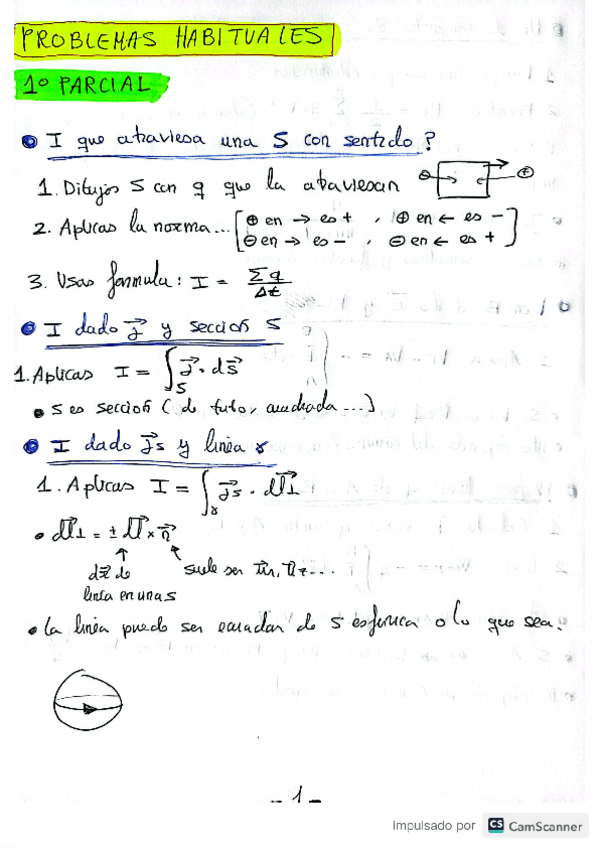 PROBLEMAS HABITUALES
1º PARCIAL
I que atraviesa una S con sentido?
1. Dibujas S con q que la atraviesan
⊖ ⊕
2. Aplicas la norma... [⊕ en → es + , ⊕ en ← es −
⊖ en → es − , ⊖ en ← es +]
3. Usas formula: I = Σq / Δt
I dado j⃗ y sección S
1. Aplicas I = ∫_S j⃗ · dS⃗
• S es sección (de tubo, cuadrada ...)
I dado j⃗s y linea γ
1. Aplicas I = ∫_γ j⃗s · dl⃗⊥
• dl⃗⊥ = ± dl⃗ × n⃗
↑ ↖
dr⃗ de suele ser u⃗r, u⃗z ...
linea en una S
• La linea puede ser ecuador de S esferica o lo que sea.
- 1 -
Impulsado por CS CamScanner